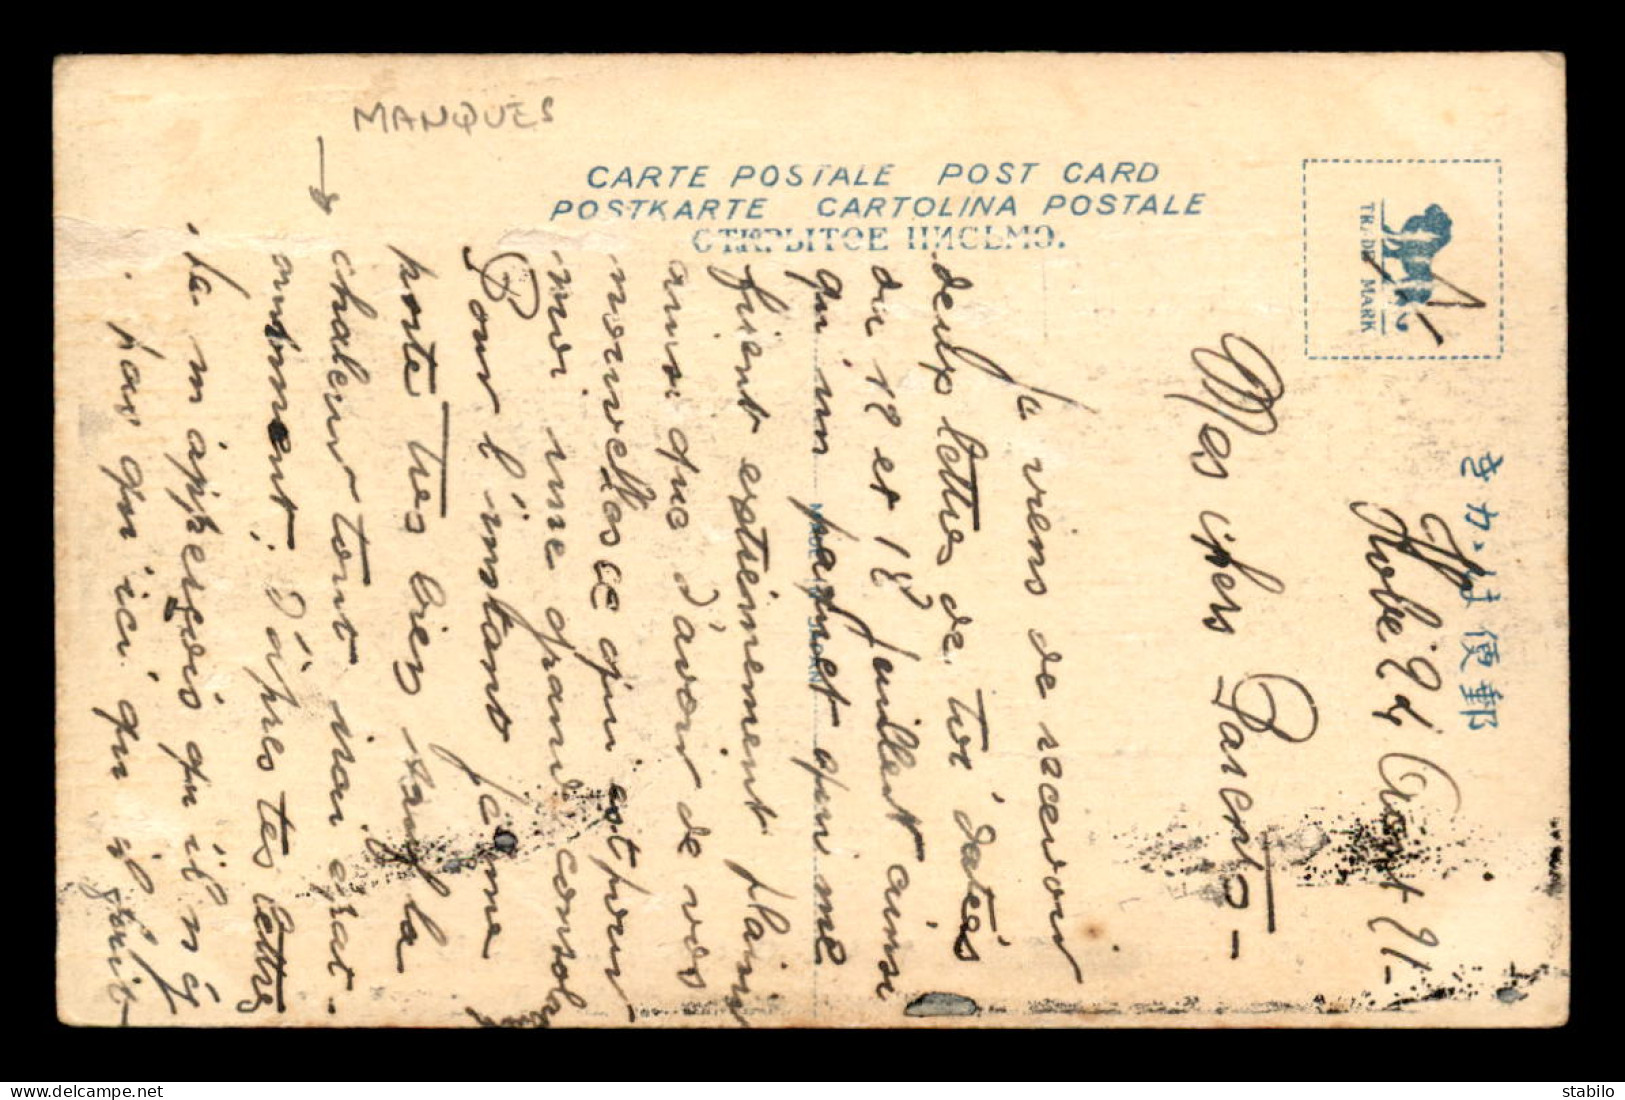 MANQUES
CARTE POSTALE POST CARD
POSTKARTE CARTOLINA POSTALE
ОТКРЫТОЕ ПИСЬМО.
TRADE MARK
きがは便郵
MADE IN JAPAN
Kobe 24 Aout 21-
Mes chers Parents -
Je viens de recevoir
deux lettres de toi datées
du 12 et 18 Juillet ainsi
qu'un paquet qui me
font extremement plaisir
ainsi que d'avoir de vos
nouvelles ce qui est pour
moi une grande consolation
Pour l'instant je me
porte tres bien sauf la
chaleur tout irai
autrement. D'après tes lettres
je m'aperçois qu'il n'y
pas qu'ici qu'il fait
stabilo
www.delcampe.net